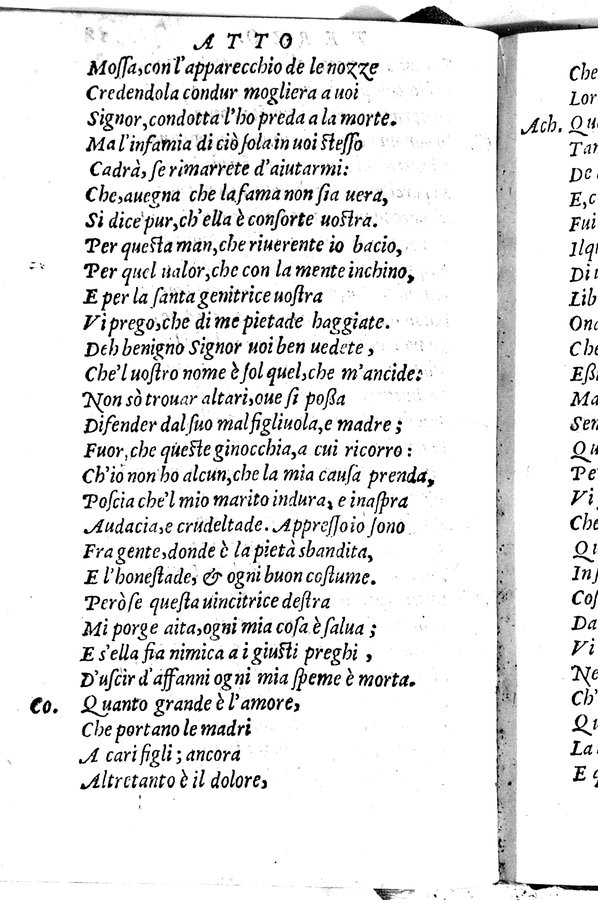 ATTO
Moſſa,con l'apparecchio de le nozze
Credendola condur mogliera a uoi
Signor,condotta l'ho preda a la morte.
Ma l'infamia di ciò ſola in uoi ſteſſo
Cadrà, ſe rimarrete d'aiutarmi:
Che,auegna che la fama non ſia uera,
Si dice pur,ch'ella è conſorte uoſtra.
Per queſta man,che riuerente io bacio,
Per quel ualor,che con la mente inchino,
E per la ſanta genitrice uoſtra
Vi prego,che di me pietade haggiate.
Deh benigno Signor uoi ben uedete,
Che'l uoſtro nome è ſol quel,che m'ancide:
Non sò trouar altari,oue ſi poßa
Difender dal ſuo mal figliuola,e madre;
Fuor,che queſte ginocchia,a cui ricorro:
Ch'io non ho alcun,che la mia cauſa prenda,
Poſcia che'l mio marito indura, e inaſpra
Audacia,e crudeltade. Appreſſo io ſono
Fra gente,donde è la pietà sbandita,
E l'honeſtade, & ogni buon coſtume.
Però ſe queſta uincitrice deſtra
Mi porge aita,ogni mia coſa è ſalua;
E s'ella fia nimica a i giuſti preghi,
D'uſcir d'affanni ogni mia ſpeme è morta.
Co. Quanto grande è l'amore,
Che portano le madri
A cari figli; ancora
Altretanto è il dolore,
Che
Lor
Ach. Qu
Tan
De
E,c
Fui
Ilq
Di
Lib
Ond
Che
Eßi
Ma
Sen
Qu
Pe
Vi
Che
Qu
Inſ
Coſ
Da
Vi
Ne
Ch'
Qu
La
E q